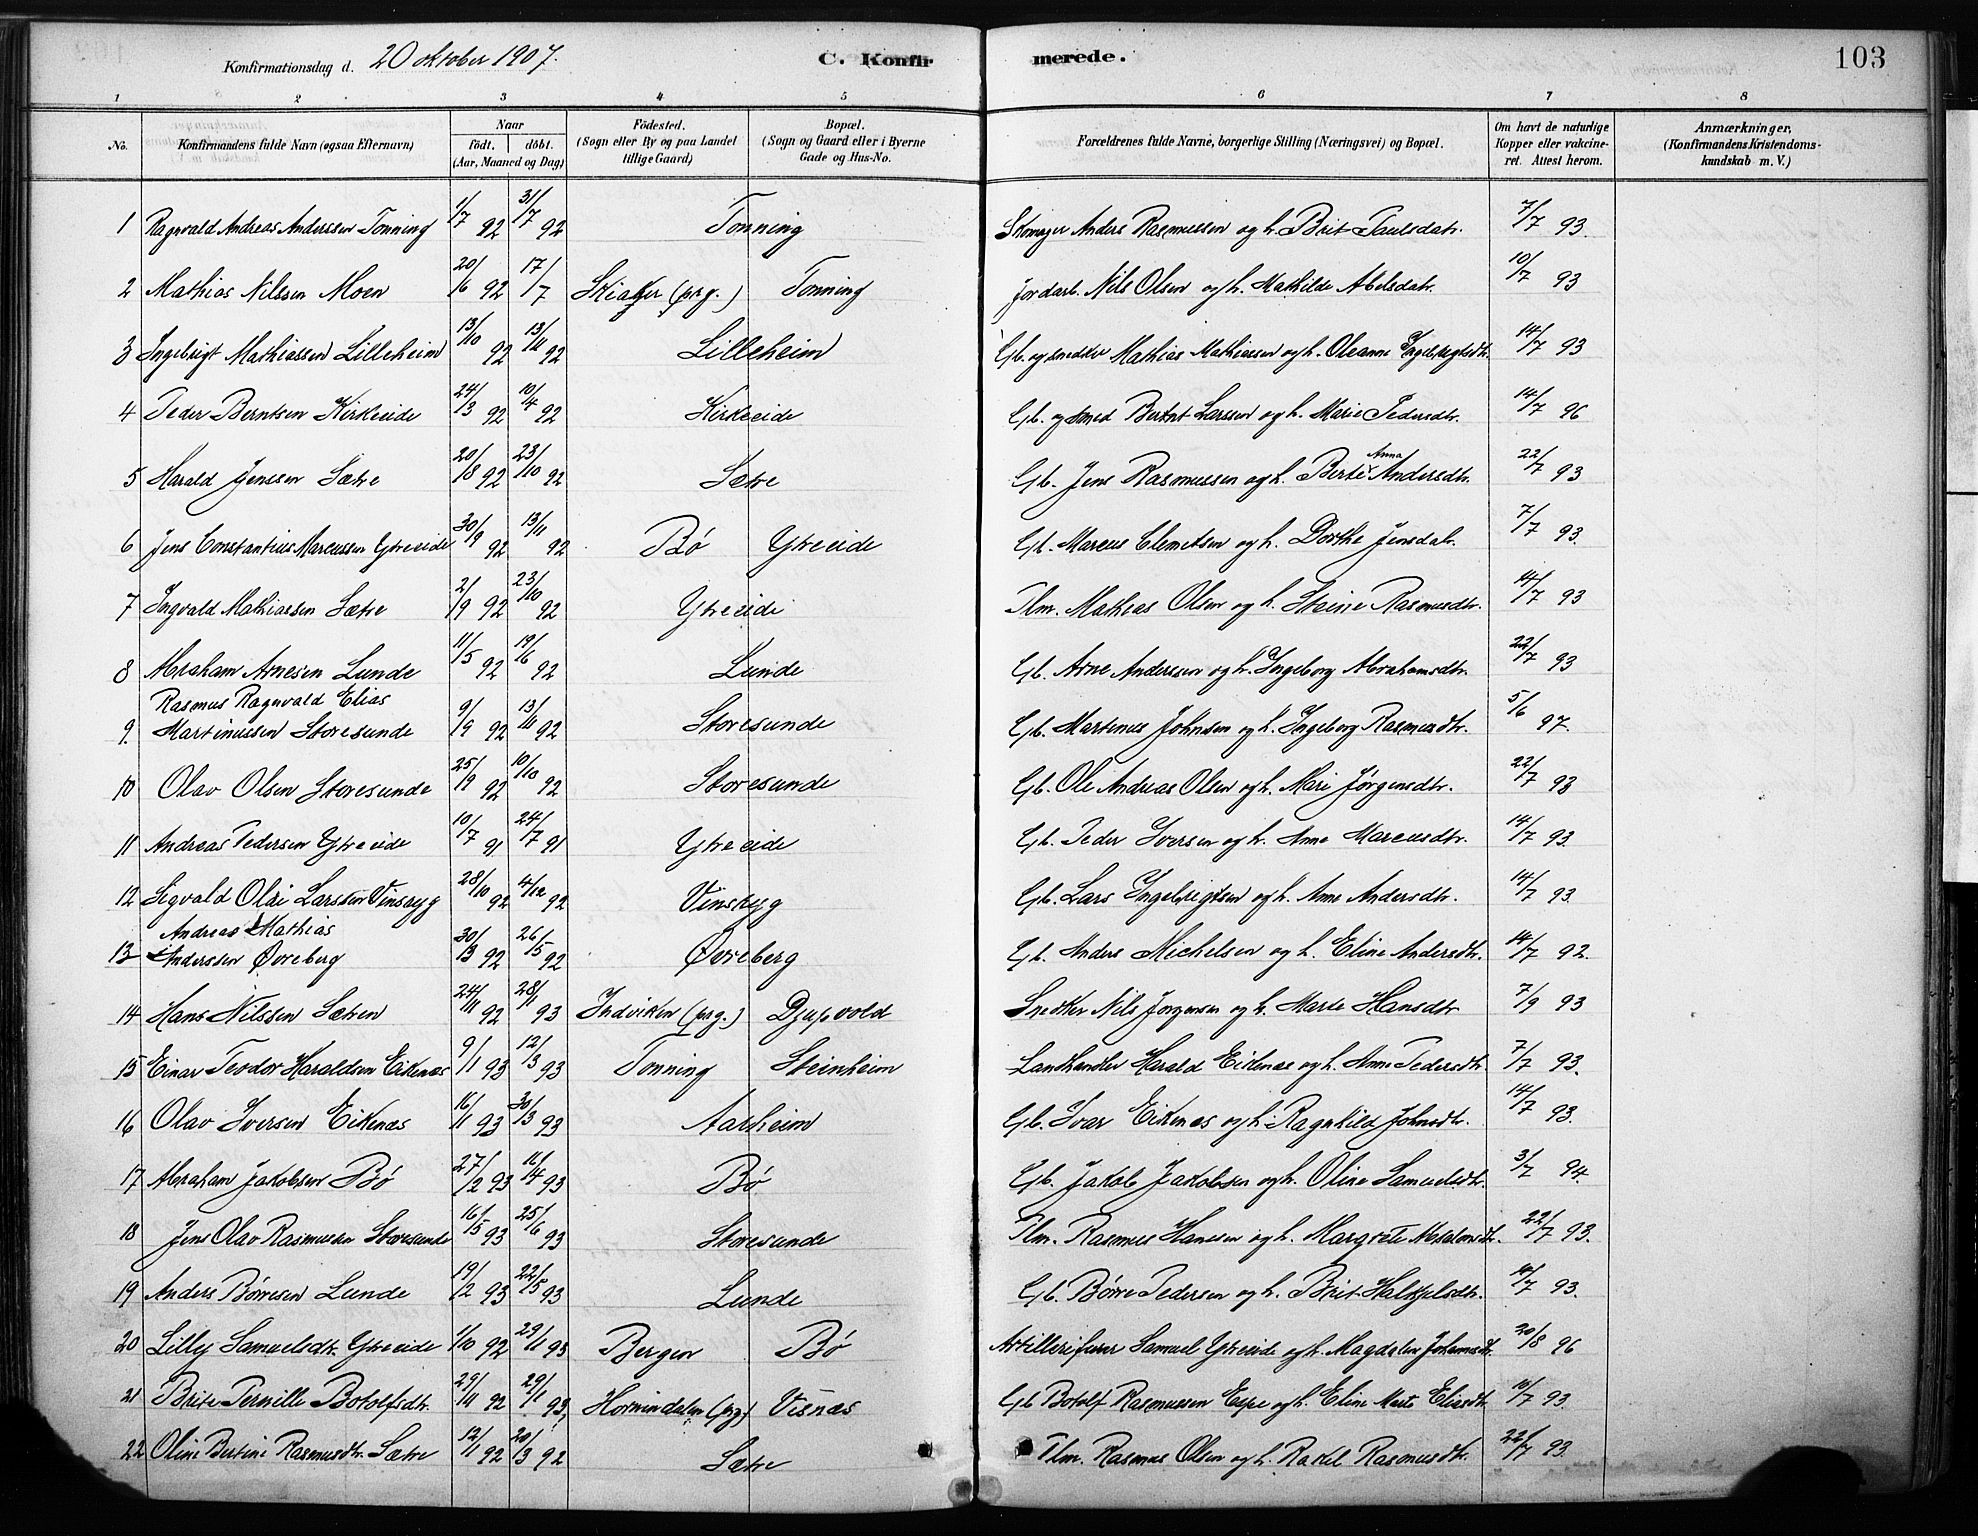 Konfirmationsdag d. 20 oktober 1907. C. Konfirmerede. 103
1 2 3 4 5 6 7 8
No. Konfirmandens fulde Navn (ogsaa Efternavn) Naar födt. döbt. (Aar, Maaned og Dag) Födested. (Sogn eller By og paa Landet tillige Gaard) Bopæl. (Sogn og Gaard eller i Byerne Gade og Hus-No. Forældrenes fulde Navne, borgerlige Stilling (Næringsvei) og Bopæl. Om havt de naturlige Kopper eller vakcineret. Attest herom. Anmærkninger, (Konfirmandens Kristendomskundskab m. V.)
1 Ragnvald Andreas Anderssen Tonning 1/7 92 31/7 92 Tonning Skomager Anders Rasmussen og h. Brit Paulsdatr. 7/7 93.
2 Mathias Nilssen Moen 20/6 92 17/7 Skiaker (prg.) Tonning Jordarb. Nils Olsen og h. Mathilde Abelsdatr. 10/7 93
3 Ingebrigt Mathiassen Lilleheim 13/10 92 13/11 92 Lilleheim Gb. og snedker Mathias Mathiassen og h. Oleanne Ingebrigtsdtr. 14/7 93
4 Peder Berntsen Kirkeeide 24/3 92 10/4 92 Kirkeeide Gb. og smed Berent Larssen og h. Marie Pedersdtr. 14/7 96
5 Harald Jenssen Sætre 20/8 92 23/10 92 Sætre Gb. Jens Rasmussen og h. Berte Anna Andersdtr. 22/7 93
6 Jens Constantius Marcussen Ytreeide 30/9 92 13/11 92 Bö Ytreeide Gb. Marcus Clemetsen og h. Dorthe Jensdatr. 7/7 93.
7 Ingvald Mathiassen Sætre 2/9 92 23/10 92 Ytreeide Plm. Mathias Olsen og h. Steine Rasmusdtr. 14/7 93
8 Abraham Arnesen Lunde 11/5 92 19/6 92 Lunde Gb. Arne Anderssen og h. Ingeborg Abrahamsdtr. 22/7 93
Rasmus Ragnvald Elias
9. Martinussen Storesunde 9/9 92 13/11 92 Storesunde Gb. Martinus Johnsen og h. Ingeborg Rasmusdtr. 5/6 97.
10 Olav Olsen Storesunde 25/9 92 10/10 92 Storesunde Gb. Ole Andreas Olsen og h. Mari Jørgensdtr. 22/7 93
11 Andreas Pedersen Ytreeide 10/7 91 24/7 91 Ytreeide Gb. Peder Iversen og h. Anne Marcusdtr. 14/7 93.
12 Sigvald Olai Larssen Vinsryg 28/10 92 4/12 92 Vinsryg Gb. Lars Ingebrigtsen og h. Anne Andersdtr. 14/7 93.
Andreas Mathias
13 Anderssen Øvreberg 30/3 92 26/5 92 Øvreberg Gb. Anders Michelsen og h. Eline Andersdtr. 14/7 92.
14 Hans Nilssen Sætren 24/11 92 28/1 93 Indviken (prg.) Djupvold Snedker Nils Jørgensen og h. Marte Hansdtr 7/9 93
15 Einar Teodor Haraldsen Eikenæs 9/1 93 12/3 93 Tonning Steinheim Landhandler Harald Eikenæs og h. Anne Pedersdtr. 7/7 93.
16 Olav Iversen Eikenæs 16/1 93 30/3 93 Aarheim Gb. Ivar Eikenæs og h. Ragnhild Johnsdtr. 14/7 93.
17 Abraham Jakobsen Bö 27/2 93 16/4 93 Bö Gb. Jakob Jakobsen og h. Oline Samuelsdtr. 3/7 94.
18 Jens Olav Rasmussen Storesunde 16/5 93 25/6 93 Storesunde Plm. Rasmus Hansen og h. Margrete Absalonsdtr. 22/7 93.
19 Anders Börresen Lunde 19/2 93 22/5 93 Lunde Gb. Börre Pedersen og h. Brit Halkjelsdtr. 14/7 93.
20 Lilly Samuelsdtr. Ytreeide 1/10 92 29/1 93 Bergen Bö Artillerifurer Samuel Ytreeide og h. Magdalen Johannesdtr. 20/8 96
21 Brite Pernille Botolfsdtr. 29/11 92 29/1 93. Hornindalen (prg.) Visnæs Gb Botolf Rasmussen Espe og h. Eline Marta Eliasdtr. 10/7 93.
22 Oline Bertine Rasmusdtr. Sætre 12/1 92 20/3 92 Sætre Plm. Rasmus Olsen og h. Rakel Rasmusdtr. 22/7 93.